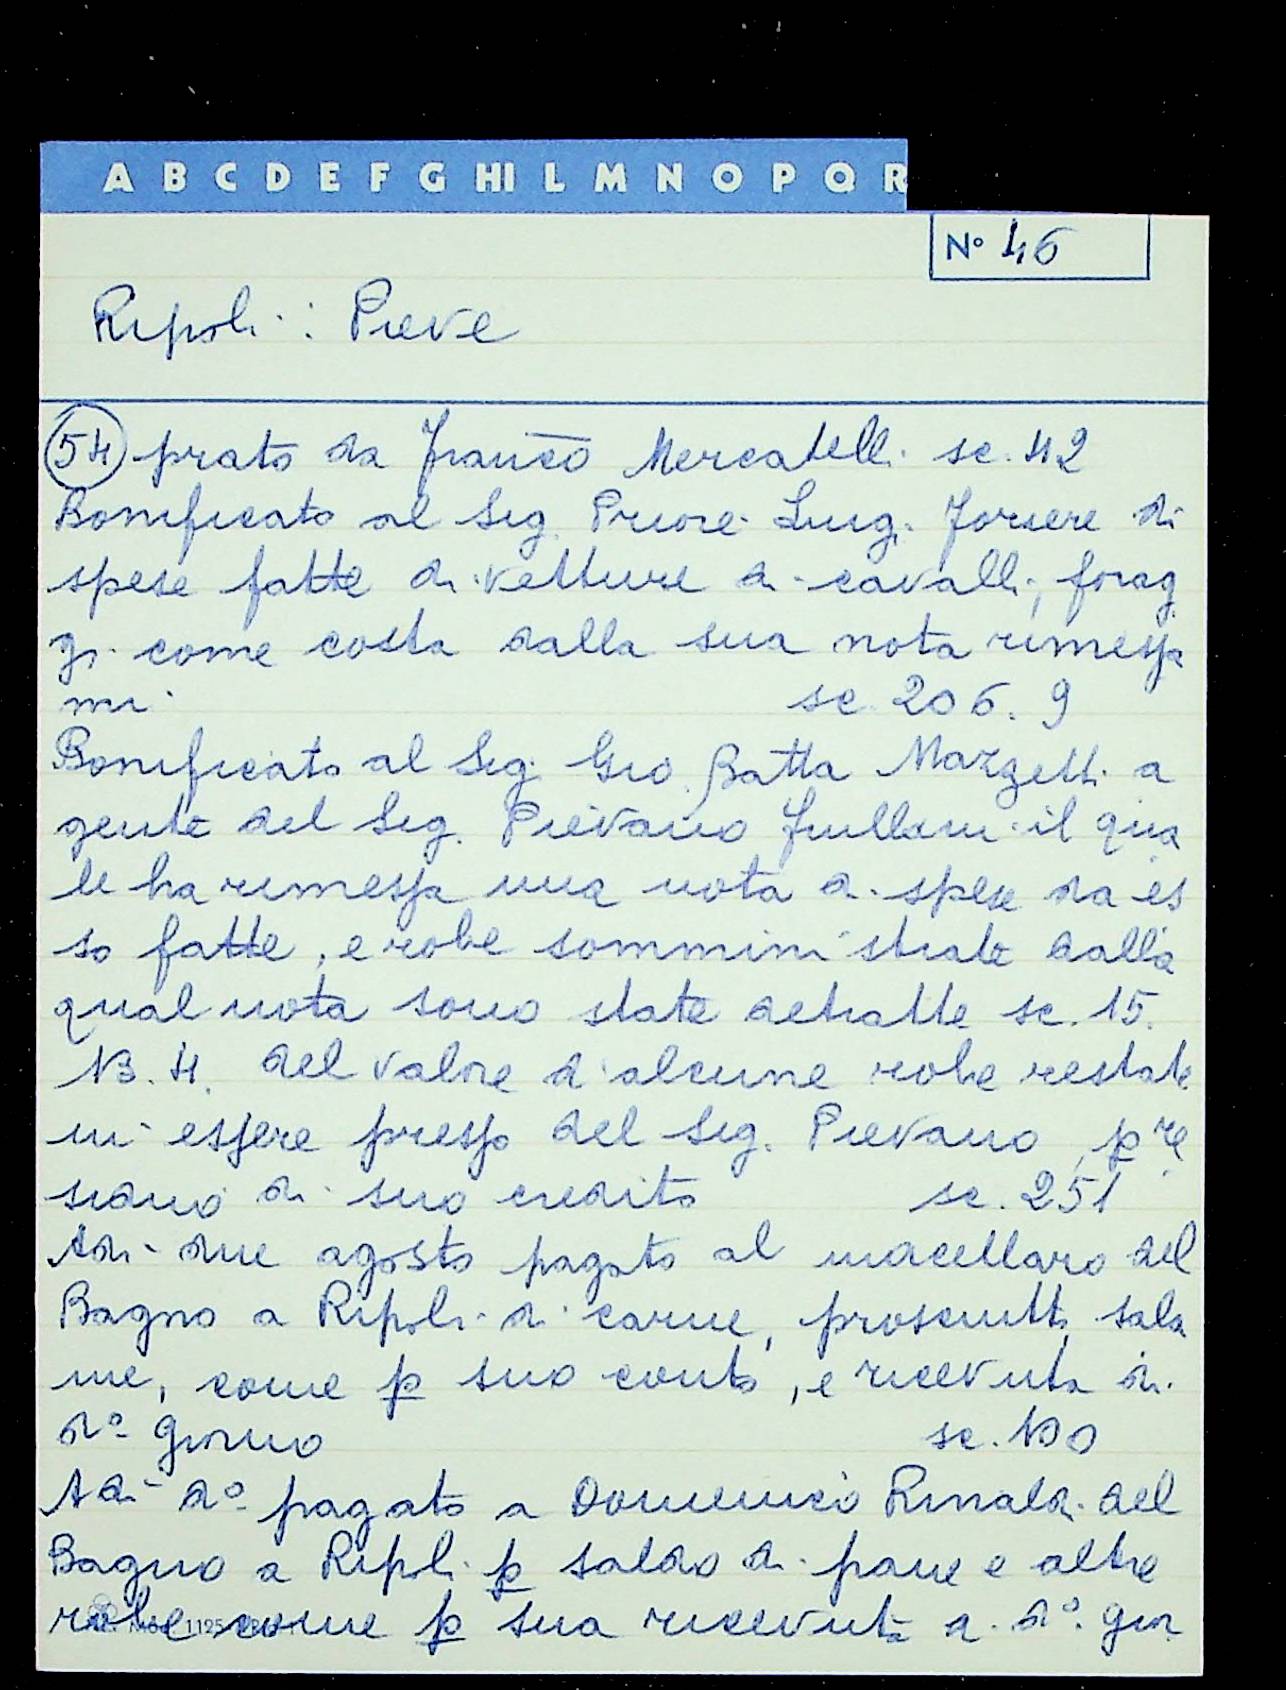 A B C D E F G HI L M N O P Q R
N° 46
Ripoli: Pieve
54 prato da Franco Mercatelli sc. 42
Bonificato al Sig. Priore Luigi Foriere di
spese fatte di vetture di cavalli, forag
gi come costa dalla sua nota rimessa
mi sc. 206. 9
Bonificato al Sig. Gio. Batta Mazzetti a
gente del Sig. Pievano Frullani il qua
le ha rimessa una nota di spese da es
so fatte, e robe somministrate dalla
qual nota sono state detratte sc. 15.
13. 4. del valore d'alcune robe restate
in essere presso del Sig. Pievano, p re
siduo di suo credito sc. 251
Adì due agosto pagato al macellaro del
Bagno a Ripoli di carne, prosciutti, sala
me, come p suo conto, e ricevuta di
d° giorno sc.
Adì d° pagato a Domenico Rinaldi del
Bagno a Ripoli p saldo di pane e altre
robe come p sua ricevuta di d° gior